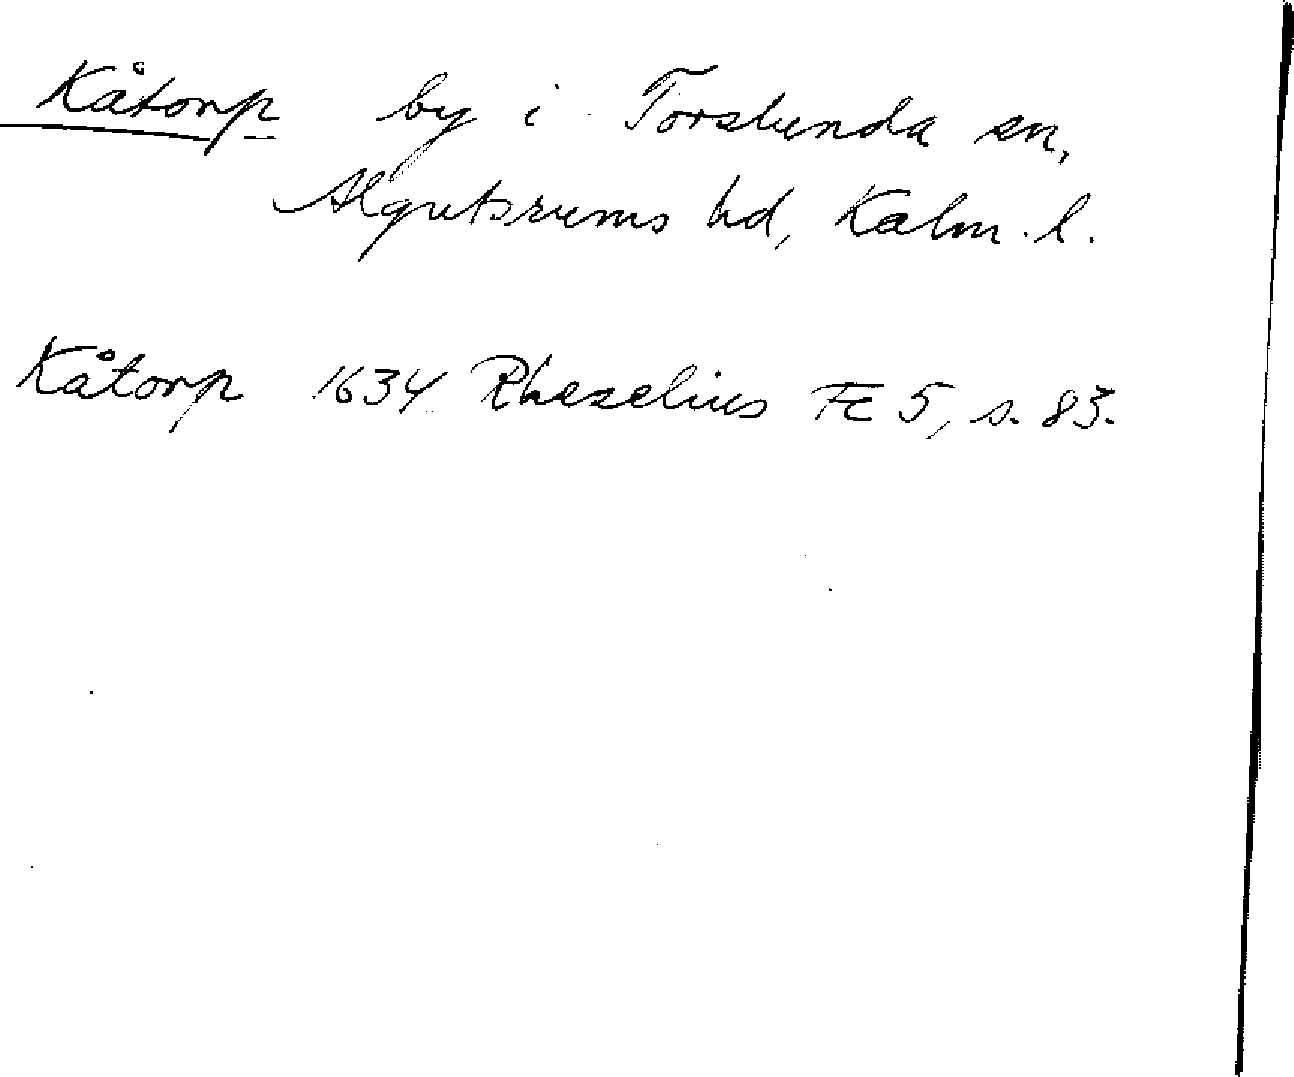 Kåtorp by i Torslunda sn,
Algutsrums hd, Kalm. l.
Kåtorp 1634 Rhezelius Fc 5, s. 83.